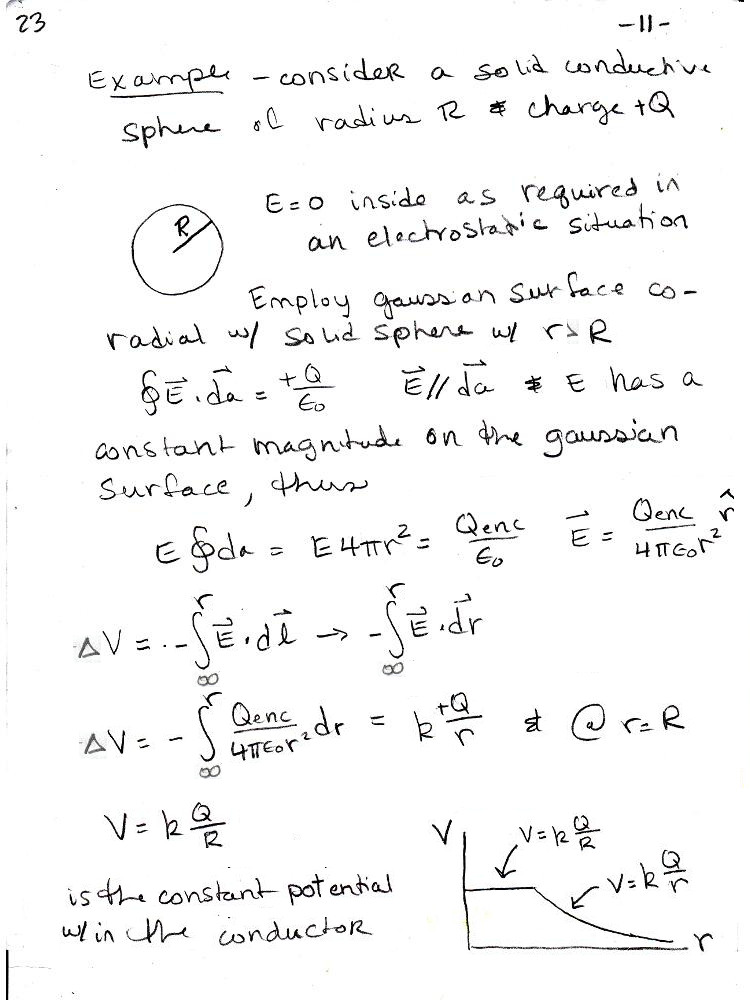 23
-11-
Example - consider a solid conductive
sphere of radius R & charge +Q
R
E=0 inside as required in
an electrostatic situation
Employ gaussian surface co-
radial w/ solid sphere w/ r>R
∮E⃗·da⃗ = +Q/ε₀   E⃗//da⃗ & E has a
constant magnitude on the gaussian
surface, thus
E∮da = E4πr² = Qenc/ε₀   E⃗ = Qenc/4πε₀r² r̂
ΔV = -∫_∞^r E⃗·dl⃗ → -∫_∞^r E⃗·dr⃗
ΔV = -∫_∞^r Qenc/4πε₀r² dr = k +Q/r & @ r=R
V = k Q/R
is the constant potential
w/in the conductor
V
V=k Q/R
V=k Q/r
r